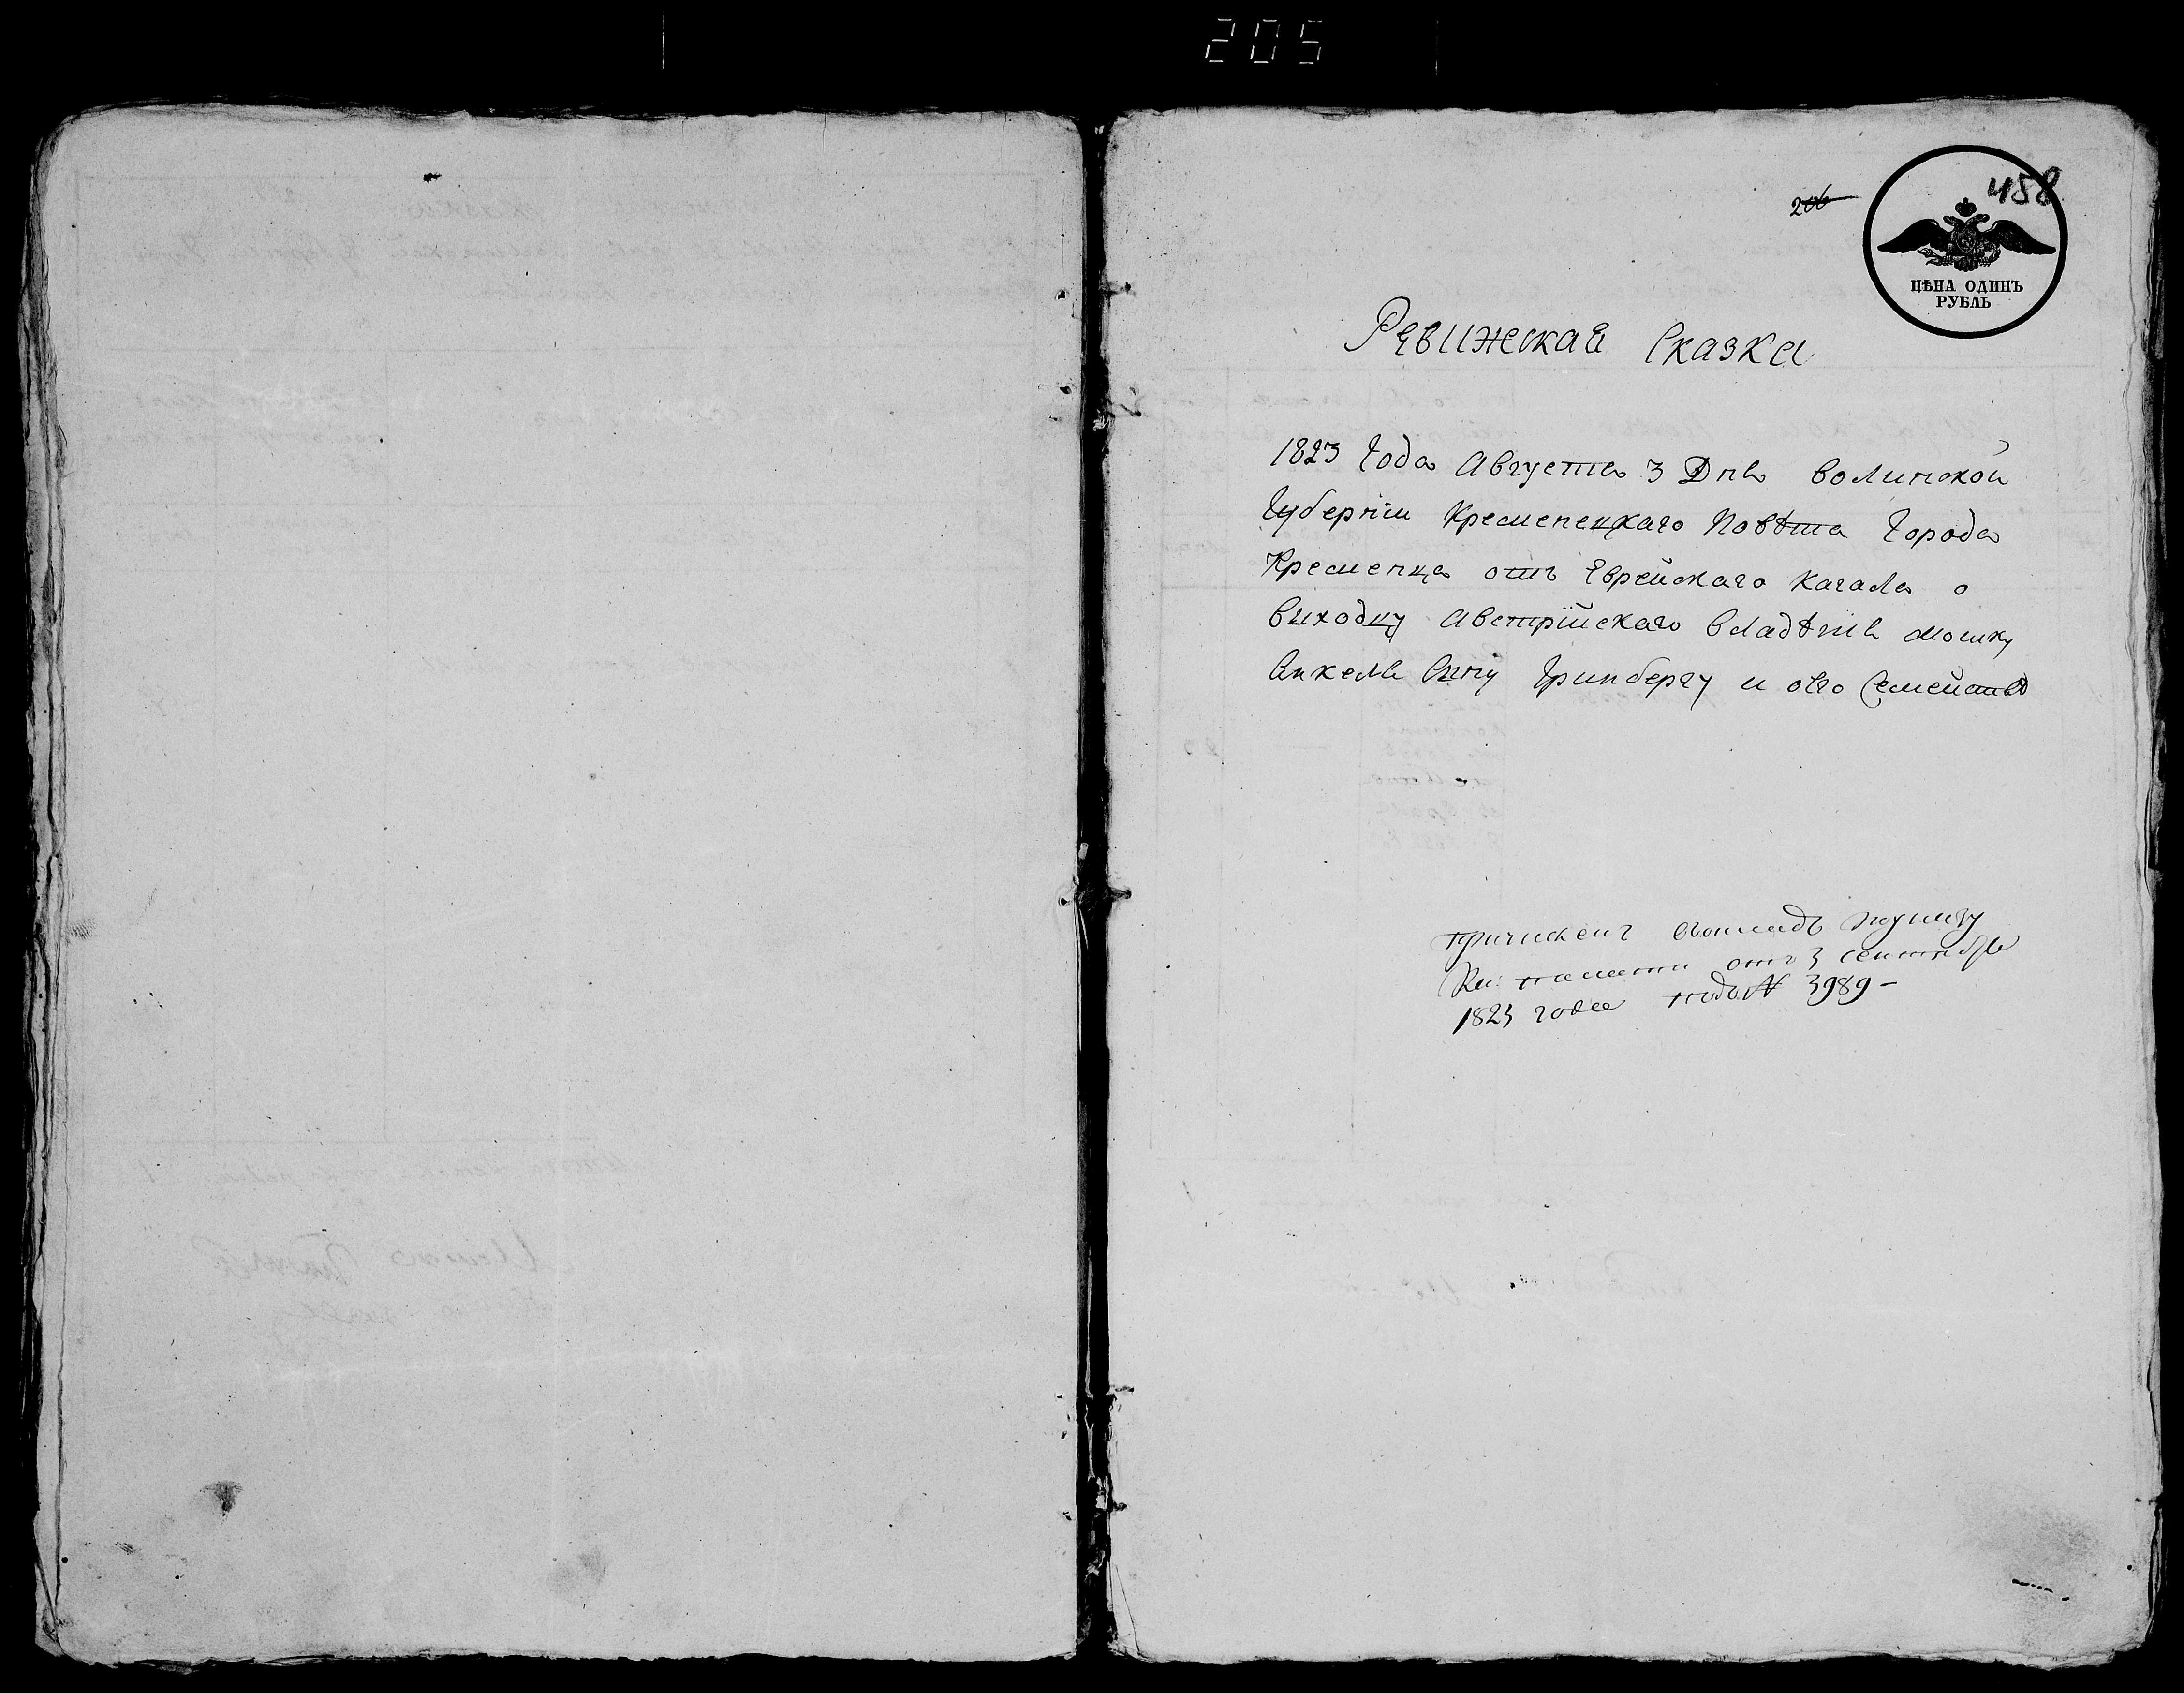 205
206
458
ЦѢНА ОДИНЪ
РУБЛЬ
Ревижская Сказка
1823 Года Августа 3 Дня Волинской
Губерніи Кременецкаго Повѣта Города
Кременца отъ Еврейскаго Кагала о
Виходцу Австрійскаго Владѣнія Мошку
Янкеля Сину Гринбергу и его Семейство
причислен окладъ
Ка: палати отъ 3 сентября
1823 года подъ N 3989 -